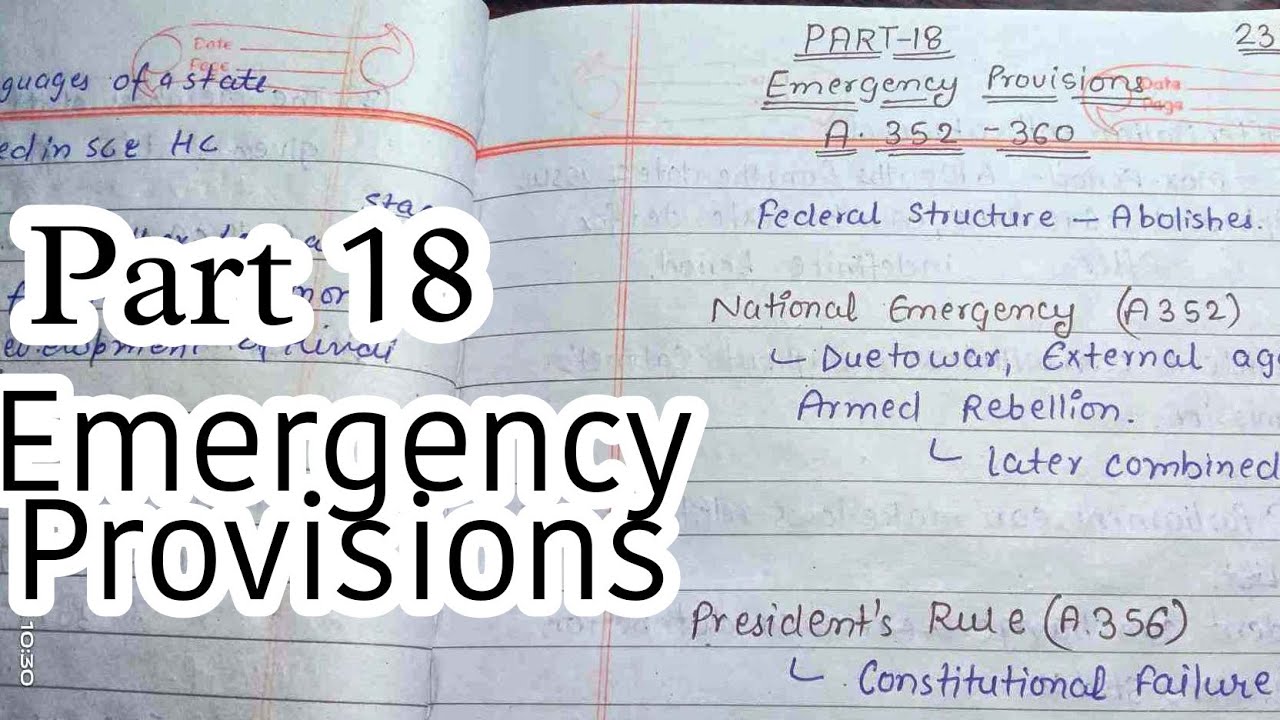 Date
Page
guages of a state.
ed in SC & HC
Part 18
Emergency
Provisions
10:30
PART-18
23
Emergency Provisions
Date
Page
A. 352 - 360
Federal Structure - Abolishes.
National Emergency (A 352)
↳ Due to war, External ag
Armed Rebellion.
↳ later combined
President's Rule (A.356)
↳ Constitutional failure